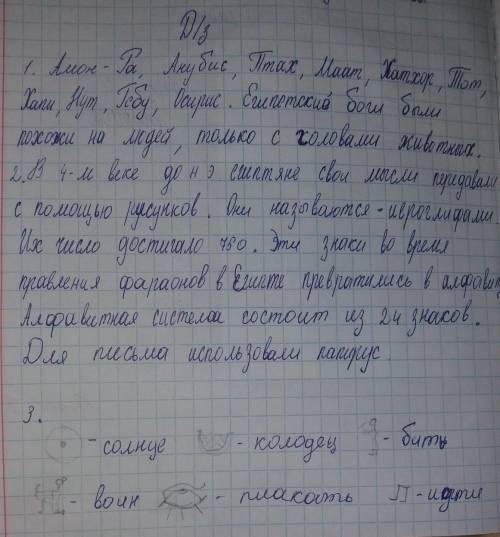 Д/з
1. Амон-Ра, Анубис, Птах, Маат, Хатхор, Тот,
Хапи, Нут, Гебу, Осирис. Египетский боги были
похожи на людей, только с головами животных.
2. В 4-м веке до н э египтяне свои мысли передавали
с помощью русунков. Они называются - иероглифами.
Их число достигало 780. Эти знаки во время
правления фараонов в Египте превратились в алфавит
Алфавитная система состоит из 24 знаков.
Для письма использовали папирус.
3.
- солнце - колодец - бить
- воин - плакать - идти